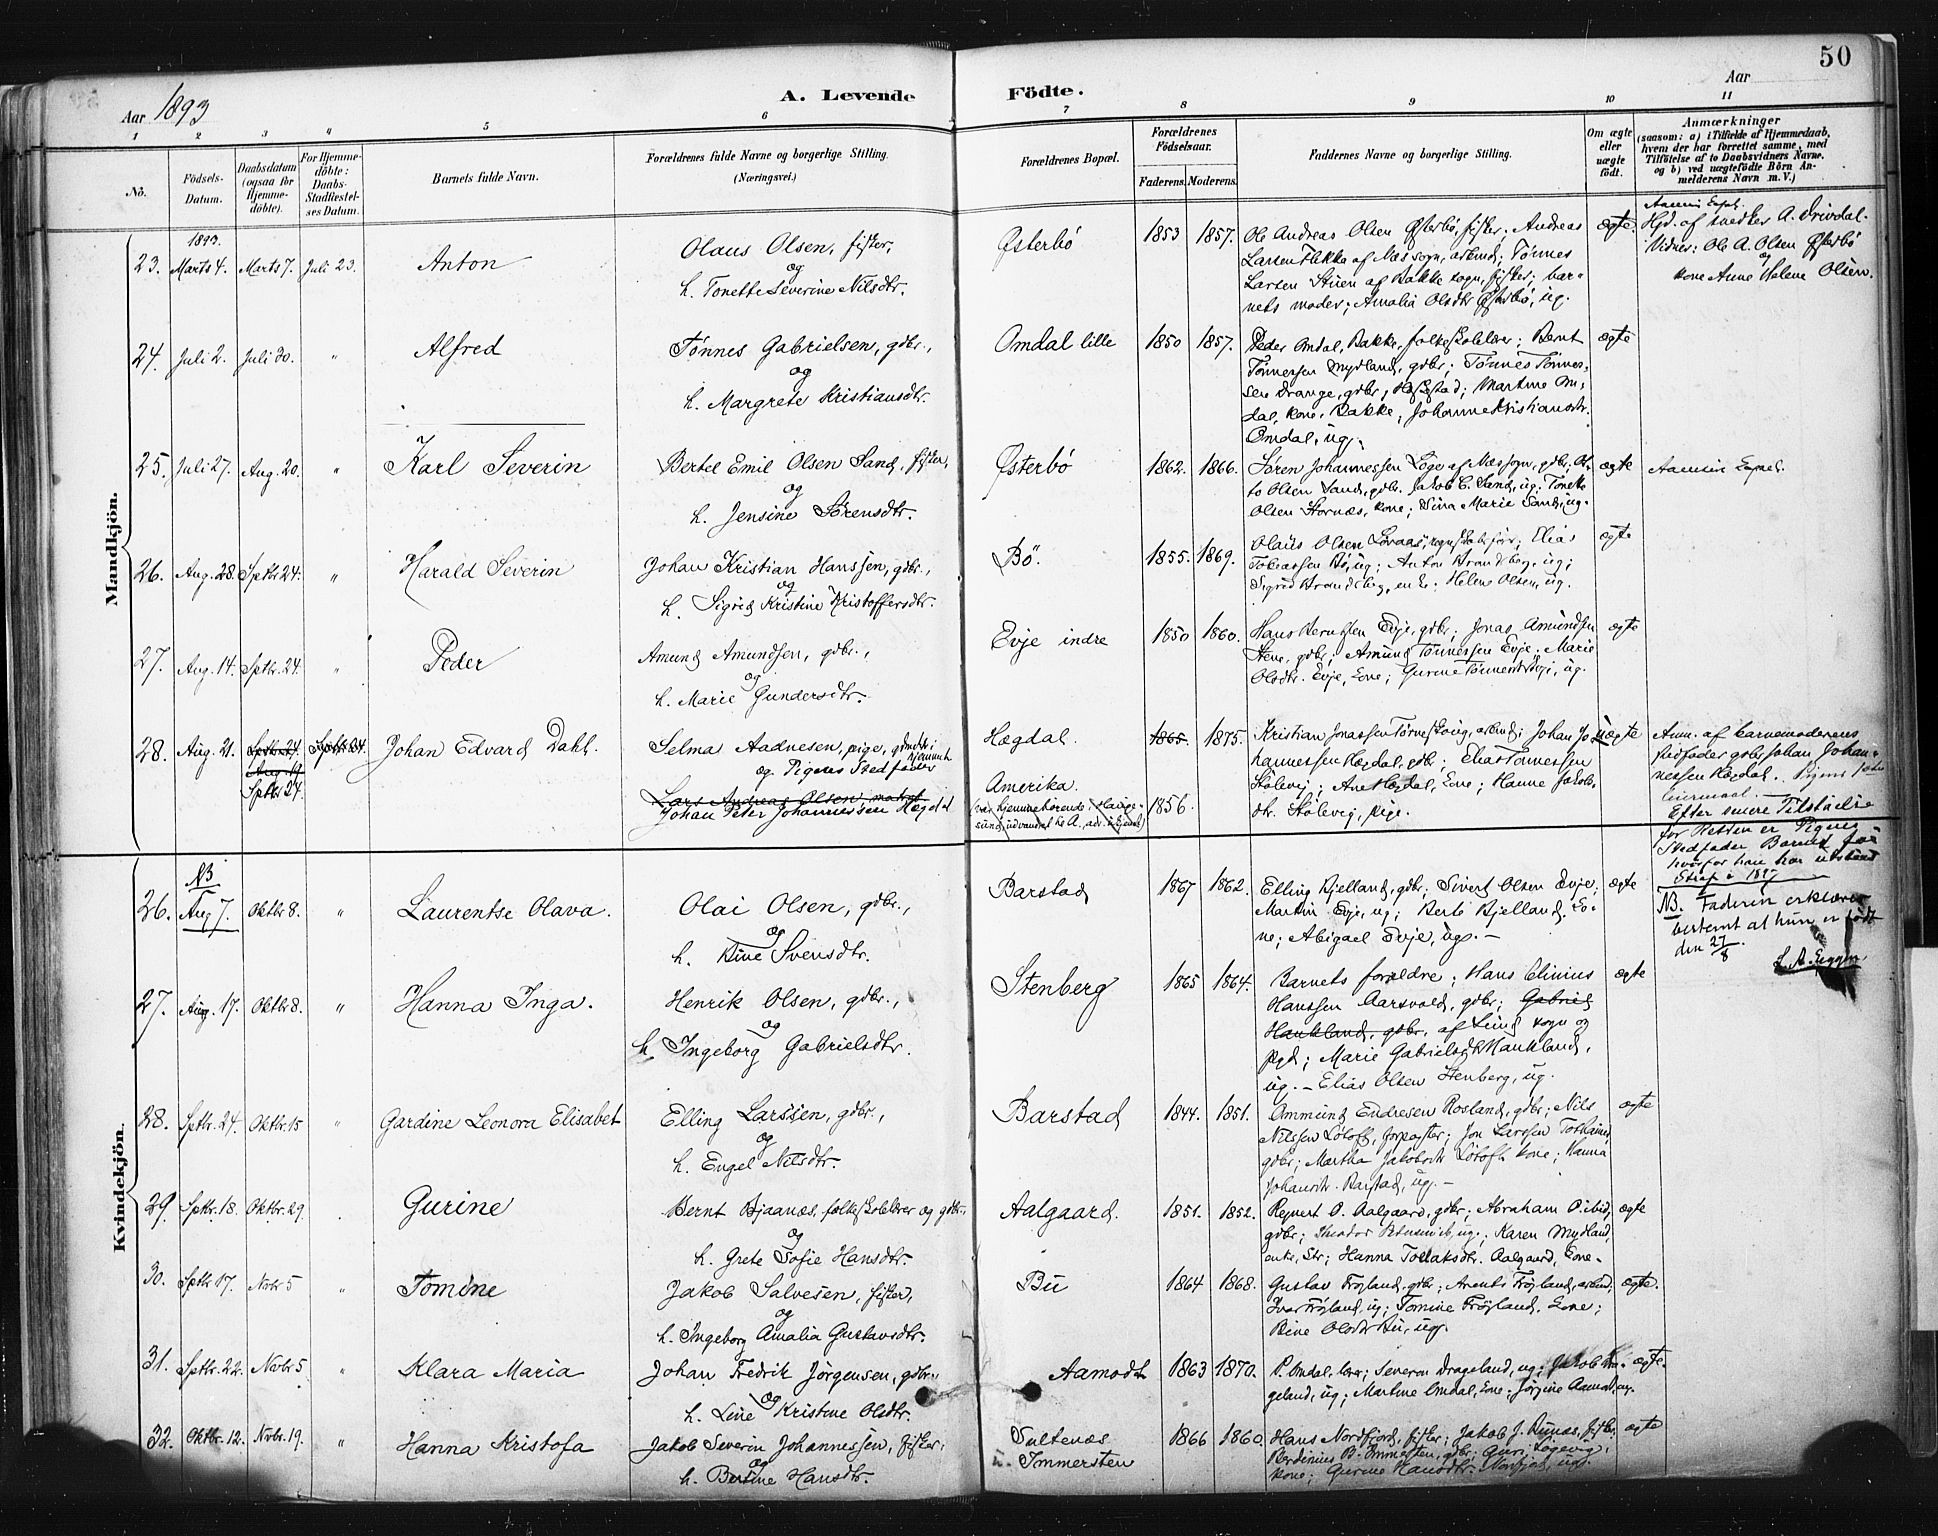 50
Aar 1893
A. Levende Födte.
Aar
1 2 3 4 5 6 7 8 9 10 11
No.
Födsels-Datum.
Daabsdatum (ogsaa for Hjemmedöbte).
For Hjemmedöbte: Daabs-Stadfæstelses Datum.
Barnets fulde Navn.
Forældrenes fulde Navne og borgerlige Stilling.
(Næringsvei.)
Forældrenes Bopæl.
Forældrenes Födselsaar.
Faderens. Moderens.
Faddernes Navne og borgerlige Stilling.
Om ægte eller uægte födt.
Anmærkninger
(saasom: a) i Tilfælde af Hjemmedaab, hvem der har forrettet samme, med Tilföielse af to Daabsvidners Navne, og b) ved uægtefödte Börn Anmelderens Navn m. V.)
Mandkjön.
1893.
23. Marts 4. Marts 7. Juli 23. Anton
Olaus Olsen, fisker,
og
h. Tonette Severine Nilsdtr.
Østerbö 1853 1857.
Ole Andreas Olsen Østerbö, fisker; Andreas
Larsen Flikka af Næs sogn, arbmd; Tönnes
Larsen Stuen af Bakke sogn, fisker; bar-
nets moder; Amalia Olsdtr Østerbö, ug.
ægte.
Hjd. af snedker A. Drivdal.
Vidner: Ole A. Olsen Østerbö
og
kone Anne Helene Olsen.
24. Juli 2. Juli 30. " Alfred
Tönnes Gabrielsen, gdbr.,
og
h. Margrete Kristiansdtr.
Omdal lille 1850 1857.
Peder Omdal, Bakke, folkeskolelærer; Bernt
Tönnessen Mydland, gdbr; Tönnes Tönnes-
sen Drange, gdbr, Hæskestad; Martine Om-
dal, kone, Bakke; Johanne Kristiansdtr.
Omdal, ug.
ægte
25. Juli 27. Aug. 20. " Karl Severin
Bertel Emil Olsen Sand, fisker,
og
h. Jensine Sörensdtr.
Østerbö 1862. 1866.
Sören Johannessen Löge af Næs sogn, gdbr, Ot-
to Olsen Sand, gdbr. Jakob C. Sand, ug. Tonette
Olsen Stornæs, kone; Sina Marie Sand, ug.
ægte
26. Aug. 28. Sptbr 24. " Harald Severin
Johan Kristian Hanssen, gdbr.,
og
h. Sigrid Kristine Kristoffersdtr.
Bö. 1855. 1869.
Olaus Olsen Lovaas,
Elias
Tobiassen Bö, ug; Anton Strandberg, ug;
Sigrid Strandberg, enke; Helene Olsen, ug.
ægte
27. Aug. 14. Sptbr. 24. " Peder
Amund Amundsen, gdbr.,
og
h. Marie Gundersdtr.
Evje indre 1850 1860.
Hans Berntsen Evje, gdbr; Jonas Amundsen
Stene, gdbr; Amund Tönnessen Evje. Marie
Olsdtr. Evje, kone; Gurine Tönnesdtr Evje, ug.
ægte
28. Aug. 21. Sptbr. 24. Sptbr. 24. Johan Edvard Dahl.
Aug. 17
Sptbr 24.
Selma Aadnesen, pige,
og Pigens Stedfader
Lars Andreas Olsen, matros
Johan Peter Johannessen Hægdal
Hægdal. 1865. 1875.
Amerika.
1856.
Kristian Jonassen Törveskoug, arbmd; Johan Jo-
hannessen Hægdal, gdbr; Elias Tönnessen
Stölevig; Ane Hægdal, kone; Hanne Jakobs-
dtr. Stölevig, pige.
uægte
Anm. af barnemoderens
stedfader gdbr Johan Johan-
nessen Hægdal. Pigens 1ste
leiermaal.
Efter senere Tilstaaelse
for Retten er Pigens
Stedfader Barnets far
hvorfor han har udstaaet
Straf i 1897
Kvindekjön.
NB
26. Aug 7. Oktbr 8. " Laurentse Olava.
Olai Olsen, gdbr.,
og
h. Bine Svensdtr.
Barstad 1867 1862.
Elling Kjelland, gdbr; Sivert Olsen Evje;
Martin Evje, ug; Berte Kjelland, ko-
ne; Abigael Evje, ug. —
ægte
NB. Faderen erklærer
bestemt at hun er födt
den 27/8.
27. Aug. 17. Oktbr 8. " Hanna Inga.
Henrik Olsen, gdbr.,
og
h. Ingeborg Gabrielsdtr.
Stenberg 1865 1864.
Barnets forældre; Hans Elinius
Hanssen Aarsvold, gdbr; Gabriel
Haukland, gdbr, af Lund sogn og
pgd; Marie Gabrielsdtr Haukland,
ug. — Elias Olsen Stenberg, ug.
ægte
28. Sptbr. 24. Oktbr. 15 " Gardine Leonora Elisabet
Elling Larssen, gdbr.,
og
h. Engel Nilsdtr.
Barstad 1844. 1851.
Ommund Endresen Rosland, gdbr; Nils
Nilssen Lötoft, forpagter; Jon Larssen
gdbr; Martha Jakobsdtr Lötoft kone; Hanna
Johansdtr. Barstad, ug. —
ægte
29. Sptbr. 18. Oktbr. 29. Gurine
Bernt Bjaanæs, folkeskolelærer og gdbr.,
og
h. Grete Sofie Hansdtr.
Aalgaard. 1851. 1852.
Rejnert O. Aalgaard, gdbr; Abraham O. ibid,
gdbr; Theodor
Karen Mydland,
Hanna Tollaksdtr. Aalgaard, kone.
ægte
30. Sptbr 17. Nvbr 5 " Tomine
Jakob Salvesen, fisker,
og
h. Ingeborg Amalia Gustavsdtr.
Bu 1864 1868.
Gustav Fröyland, gdbr; Arent Fröyland, arbmd,
Ivar Fröyland, ug; Tomine Fröyland, kone;
Bine Olsdtr Bu, ug.
ægte.
31. Sptbr. 22. Nvbr 5 " Klara Maria
Johan Fredrik Jörgensen, gdbr.,
og
h. Line Kristine Olsdtr.
Aamodt 1863 1870.
P. Omdal, lærer; Severin Drageland, ug; Jakob Dra-
geland, ug; Martine Omdal, kone; Jörgine Aamodt, ug.
ægte.
32. Oktbr. 12. Nvbr. 19. " Hanna Kristofa
Jakob Severin Johannessen, fisker,
og
h. Bertine Hansdtr.
Sultenæs
Immersten
1866 1860
Hans Nordfjord, fisker; Jakob J. Runæs, fisker,
Berdinius B. Immersten, gdbr; Guri Legevig,
kone; Gurine Hansdtr. Nordfjord, ug.
ægte